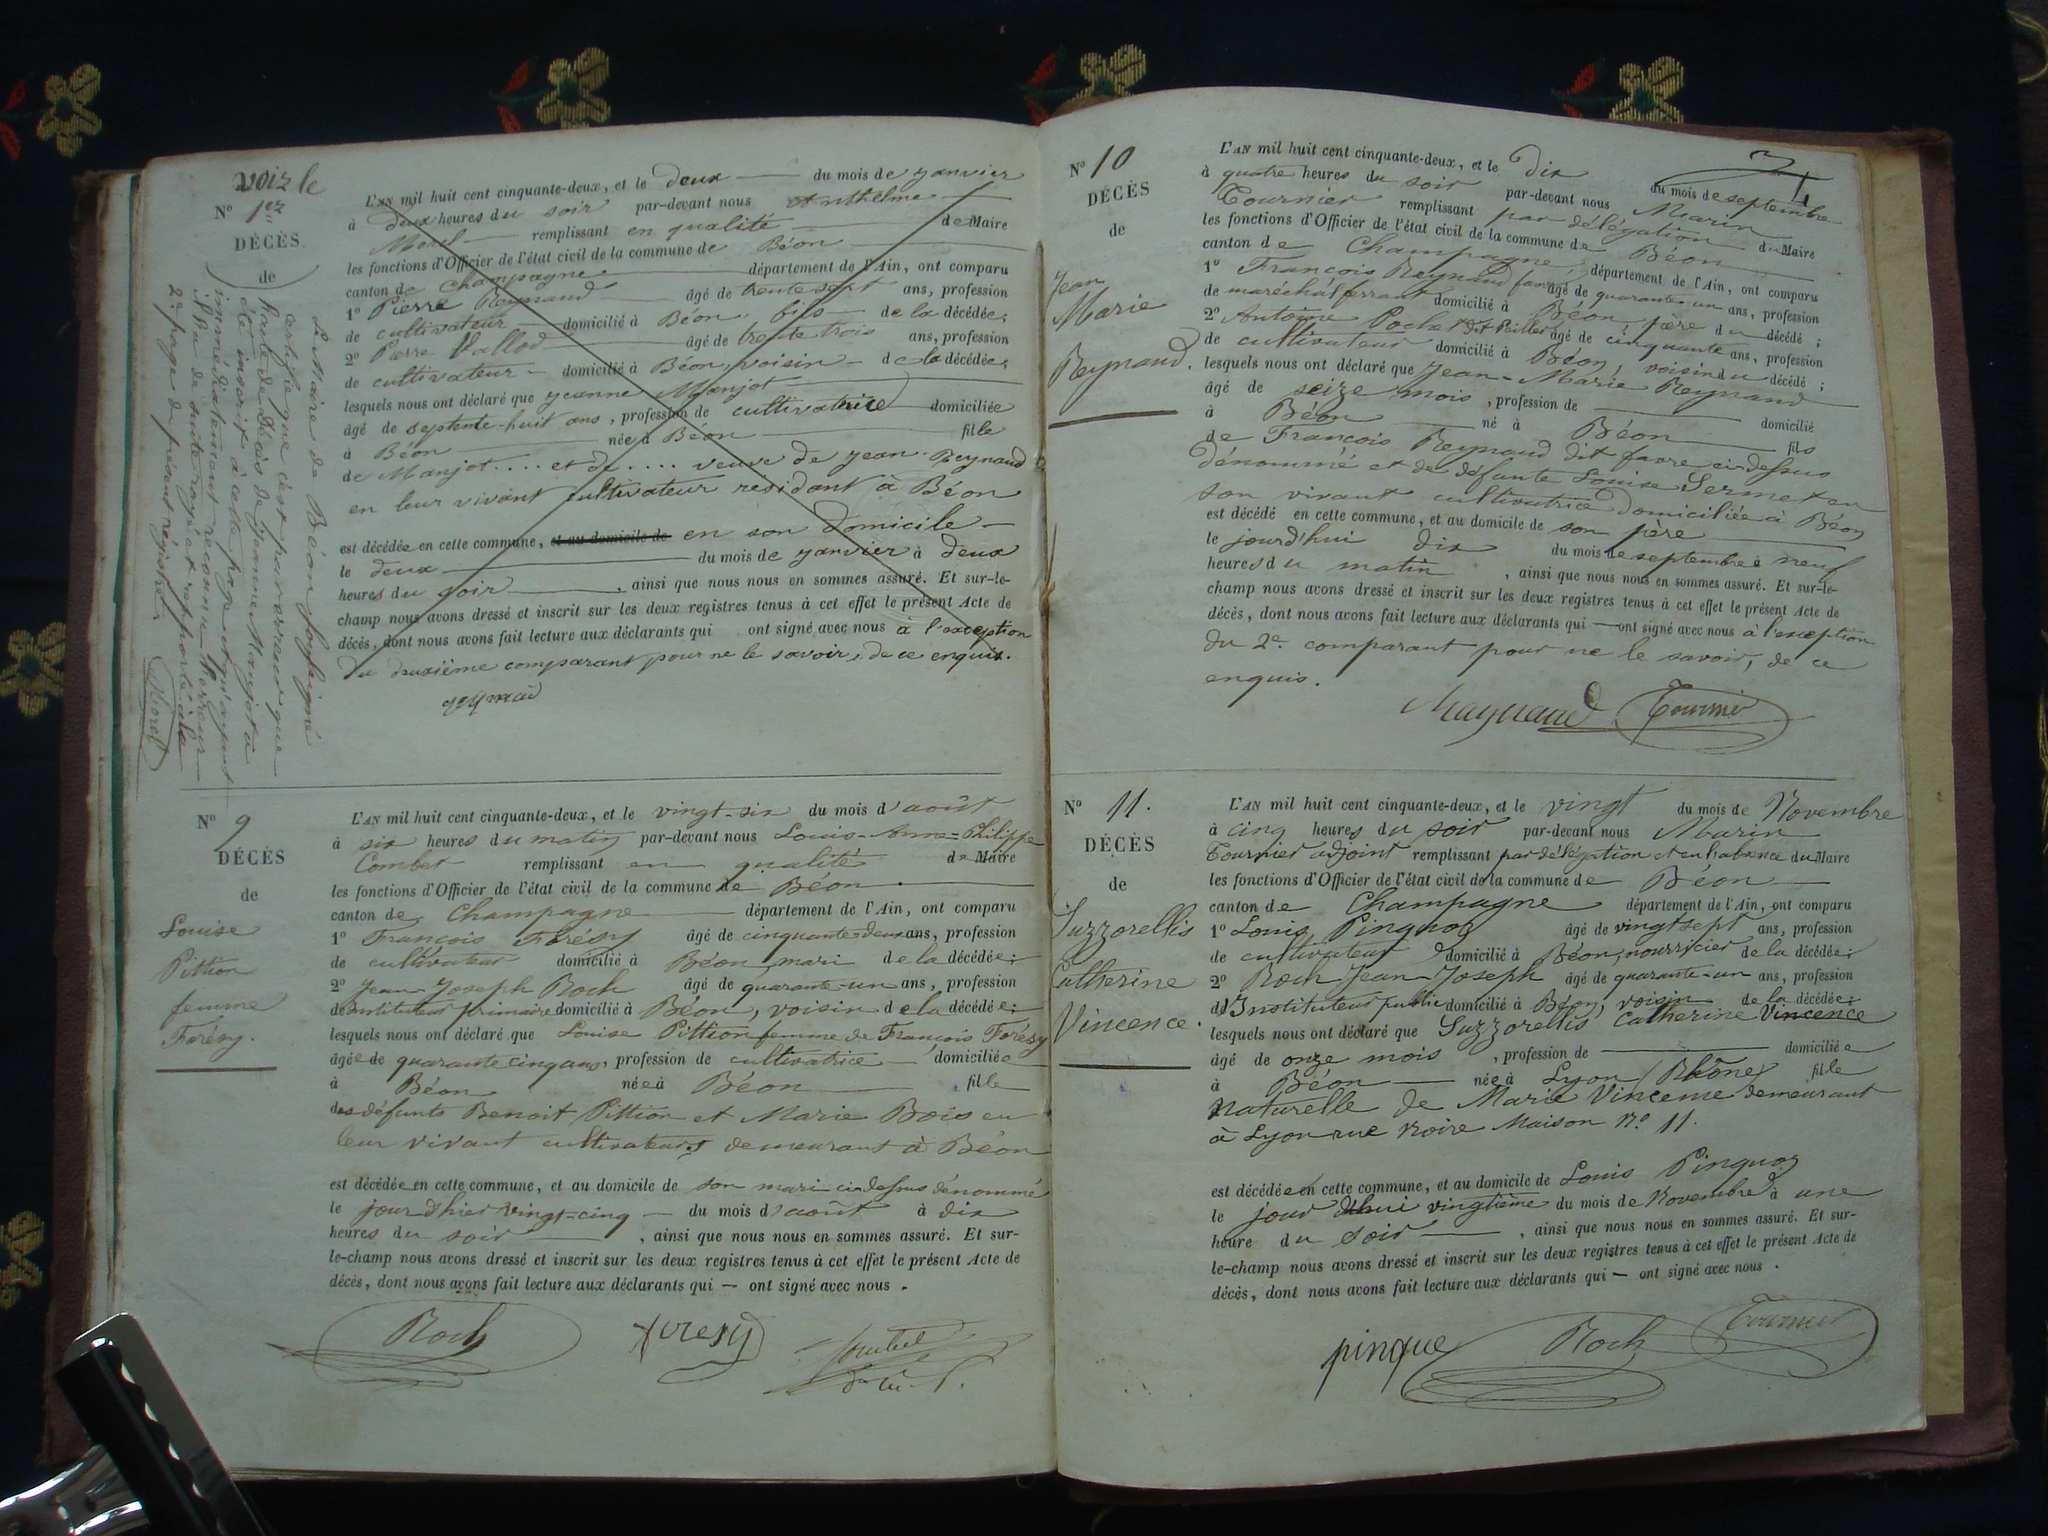 voir le
N° 1er
DÉCÈS
de
Le Maire de Béon soussigné
certifie que c'est par erreur que
l'acte de Décès de Jeanne Manjot a
été inscrit à cette page et qu'ayant
immédiatement reconnu l'erreur
il l'a de suite rayé et rapporté à la
2e page du présent régistre.
Morel
L'AN mil huit cent cinquante-deux, et le deux du mois de janvier
à deux heures du soir par-devant nous Anthelme
Morel remplissant en qualité de Maire
les fonctions d'Officier de l'état civil de la commune de Béon
canton de Champagne département de l'Ain, ont comparu
1° Pierre Reynaud âgé de trente sept ans, profession
de cultivateur domicilié à Béon, fils de la décédée;
2° Pierre Vallod âgé de trente trois ans, profession
de cultivateur domicilié à Béon, voisin de la décédée;
lesquels nous ont déclaré que Jeanne Manjot
âgé de septente-huit ans, profession de cultivatrice domiciliée
à Béon née à Béon fille
de Manjot .... et de .... veuve de Jean Reynaud
en leur vivant cultivateur residant à Béon
est décédée en cette commune, et au domicile de en son domicile
le deux du mois de janvier à deux
heures du soir, ainsi que nous nous en sommes assuré. Et sur-le-
champ nous avons dressé et inscrit sur les deux registres tenus à cet effet le présent Acte de
décès, dont nous avons fait lecture aux déclarants qui ont signé avec nous à l'exception
du deuxième comparant pour ne le savoir, de ce enquis.
reymaud
N° 9
DÉCÈS
de
Louise
Pittion
femme
Forésy.
L'AN mil huit cent cinquante-deux, et le vingt-six du mois d'août
à six heures du matin par-devant nous Louis-Anne-Philippe
Combet remplissant en qualité de Maire
les fonctions d'Officier de l'état civil de la commune de Béon
canton de Champagne département de l'Ain, ont comparu
1° François Forésy âgé de cinquante deux ans, profession
de cultivateur domicilié à Béon, mari de la décédée;
2° Jean-Joseph Roch âgé de quarante-un ans, profession
d'instituteur primaire domicilié à Béon, voisin de la décédée;
lesquels nous ont déclaré que Louise Pittion femme de François Forésy
âgée de quarante cinq ans, profession de cultivatrice domiciliée
à Béon née à Béon fille
des défunts Benoit Pittion et Marie Bois en
leur vivant cultivateurs demeurant à Béon
est décédée en cette commune, et au domicile de son mari ci-dessus dénommé
le jour d'hier vingt-cinq du mois d'août à dix
heures du soir, ainsi que nous nous en sommes assuré. Et sur-
le-champ nous avons dressé et inscrit sur les deux registres tenus à cet effet le présent Acte de
décès, dont nous avons fait lecture aux déclarants qui — ont signé avec nous.
Roch foresy
N° 10
DÉCÈS
de
Jean
Marie
Reynaud.
L'AN mil huit cent cinquante-deux, et le dix du mois de septembre
à quatre heures du soir par-devant nous Marin
Tournier remplissant par délégation du Maire
les fonctions d'Officier de l'état civil de la commune de Béon
canton de Champagne, département de l'Ain, ont comparu
1° François Reynaud favre âgé de quarante-un ans, profession
de maréchal ferrant domicilié à Béon père du décédé;
2° Antoine Roch dit Peillet âgé de cinquante ans, profession
de cultivateur domicilié à Béon, voisin du décédé;
lesquels nous ont déclaré que Jean-Marie Reynaud
âgé de seize mois, profession de domicilié
à Béon né à Béon fils
de François Reynaud dit favre ci-dessus
dénommé et de défunte Louise Sermet en
son vivant cultivatrice domiciliée à Béon
est décédé en cette commune, et au domicile de son père
le jourd'hui dix du mois de septembre à neuf
heures du matin, ainsi que nous nous en sommes assuré. Et sur-le-
champ nous avons dressé et inscrit sur les deux registres tenus à cet effet le présent Acte de
décès, dont nous avons fait lecture aux déclarants qui — ont signé avec nous à l'exception
du 2e comparant pour ne le savoir, de ce
enquis.
Raynaud Tournier
N° 11.
DÉCÈS
de
Suzzorellis
Catherine
Vincence.
L'AN mil huit cent cinquante-deux, et le vingt du mois de Novembre
à cinq heures du soir par-devant nous Marin
Tournier adjoint remplissant par délégation et en l'absence du Maire
les fonctions d'Officier de l'état civil de la commune de Béon
canton de Champagne département de l'Ain, ont comparu
1° Louis Pinquoz âgé de vingt sept ans, profession
de cultivateur domicilié à Béon, nourricier de la décédée;
2° Roch Jean-Joseph âgé de quarante-un ans, profession
d'Instituteur public domicilié à Béon, voisin de la décédée;
lesquels nous ont déclaré que Suzzorellis Catherine Vincence
âgé de onze mois, profession de domiciliée
à Béon née à Lyon (Rhône) fille
Naturelle de Marie Vinceme demeurant
à Lyon rue Noire Maison N° 11.
est décédée en cette commune, et au domicile de Louis Pinquoz
le jour d'hui vingtième du mois de Novembre à une
heure du soir, ainsi que nous nous en sommes assuré. Et sur-
le-champ nous avons dressé et inscrit sur les deux registres tenus à cet effet le présent Acte de
décès, dont nous avons fait lecture aux déclarants qui — ont signé avec nous.
pinque Roch Tournier